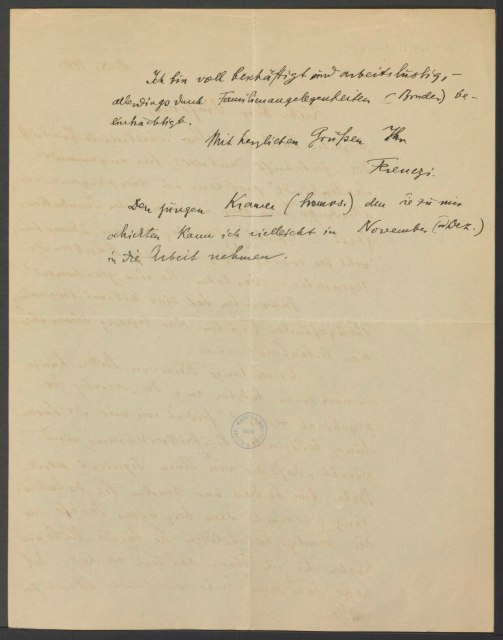 Ich bin voll beschäftigt und arbeitslustig, –
allerdings durch Familienangelegenheiten (Bruder) be-
einträchtigt.
Mit herzlichen Grüßen Ihr
Ferenczi.
Den jungen Kramer (homos.) den Sie zu mir
schickten kann ich vielleicht in November (od Dez.)
in die Arbeit nehmen.